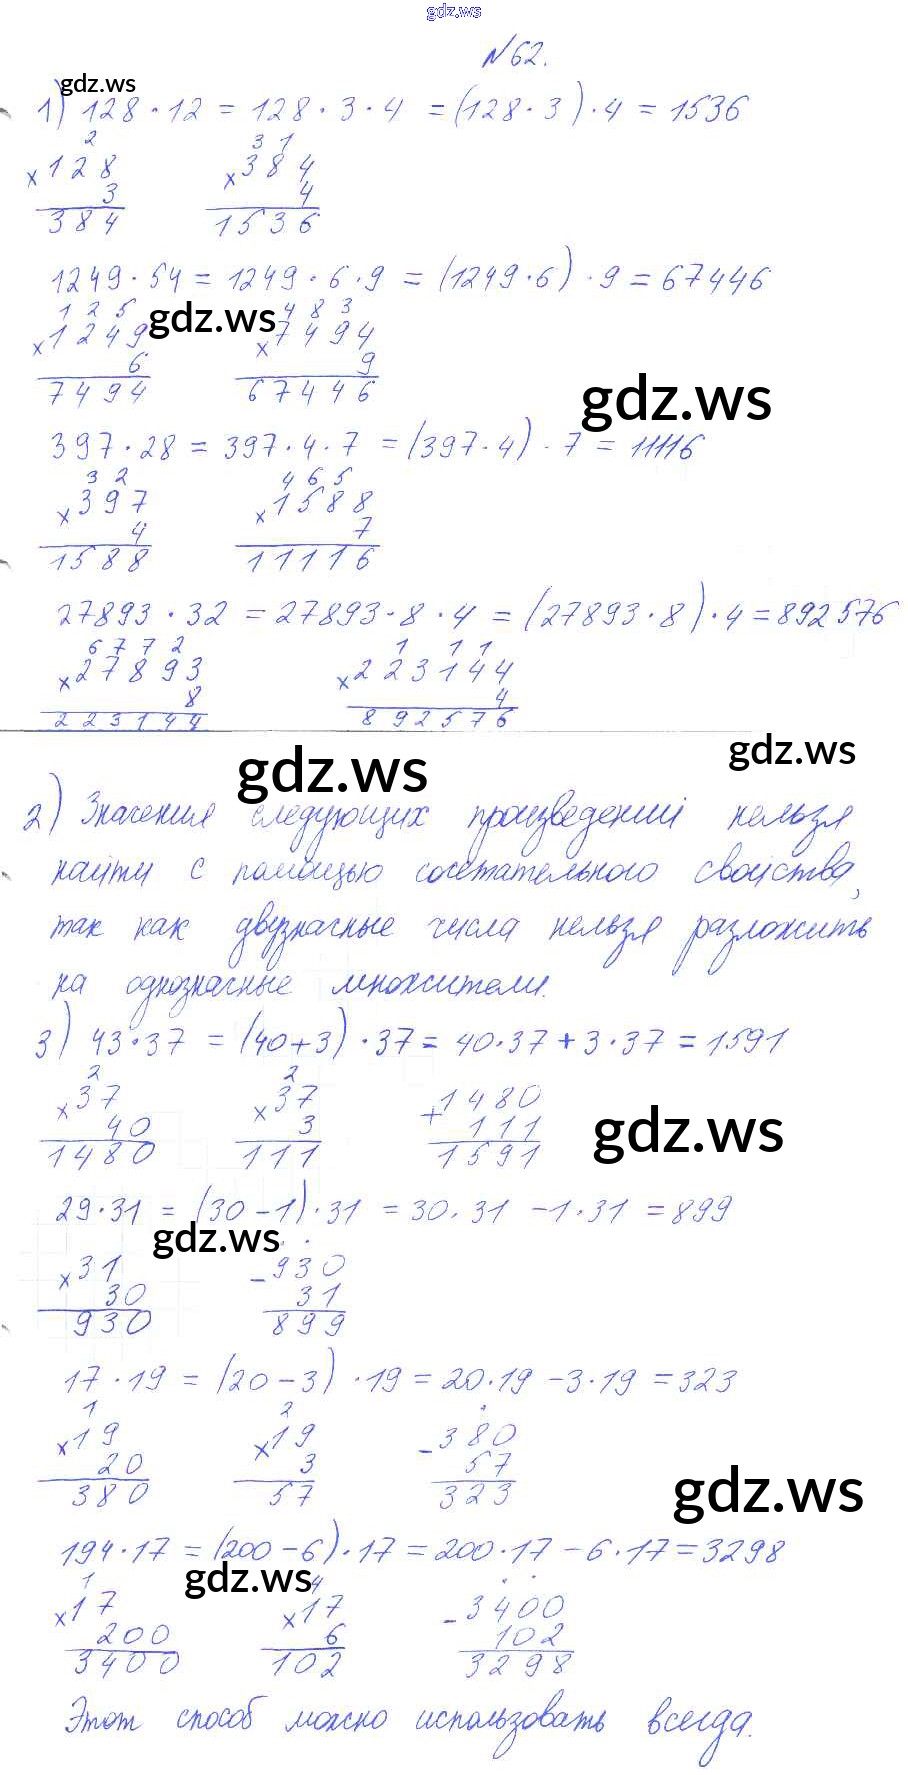 gdz.ws
№62.
gdz.ws
1) 128 · 12 = 128 · 3 · 4 = (128 · 3) · 4 = 1536
2 3 1
× 128 × 384
3 4
384 1536
1249 · 54 = 1249 · 6 · 9 = (1249 · 6) · 9 = 67446
1 2 5 gdz.ws 4 8 3
× 1249 × 7494
6 9
7494 67446
gdz.ws
397 · 28 = 397 · 4 · 7 = (397 · 4) · 7 = 11116
3 2 4 6 5
× 397 × 1588
4 7
1588 11116
27893 · 32 = 27893 · 8 · 4 = (27893 · 8) · 4 = 892576
6 7 7 2 1 1 1
× 27893 × 223144
8 4
223144 892576
gdz.ws gdz.ws
2) Значения следующих произведений нельзя
найти с помощью сочетательного свойства,
так как двузначные числа нельзя разложить
на однозначные множители.
3) 43 · 37 = (40 + 3) · 37 = 40 · 37 + 3 · 37 = 1591
2 2
× 37 × 37 + 1480
40 3 111
1480 111 1591
gdz.ws
29 · 31 = (30 − 1) · 31 = 30 · 31 − 1 · 31 = 899
gdz.ws
× 31 − 930
30 31
930 899
17 · 19 = (20 − 3) · 19 = 20 · 19 − 3 · 19 = 323
1 2
× 19 × 19 − 380
20 3 57
380 57 323
gdz.ws
194 · 17 = (200 − 6) · 17 = 200 · 17 − 6 · 17 = 3298
1 gdz.ws 4
× 17 × 17 − 3400
200 6 102
3400 102 3298
Этот способ можно использовать всегда.